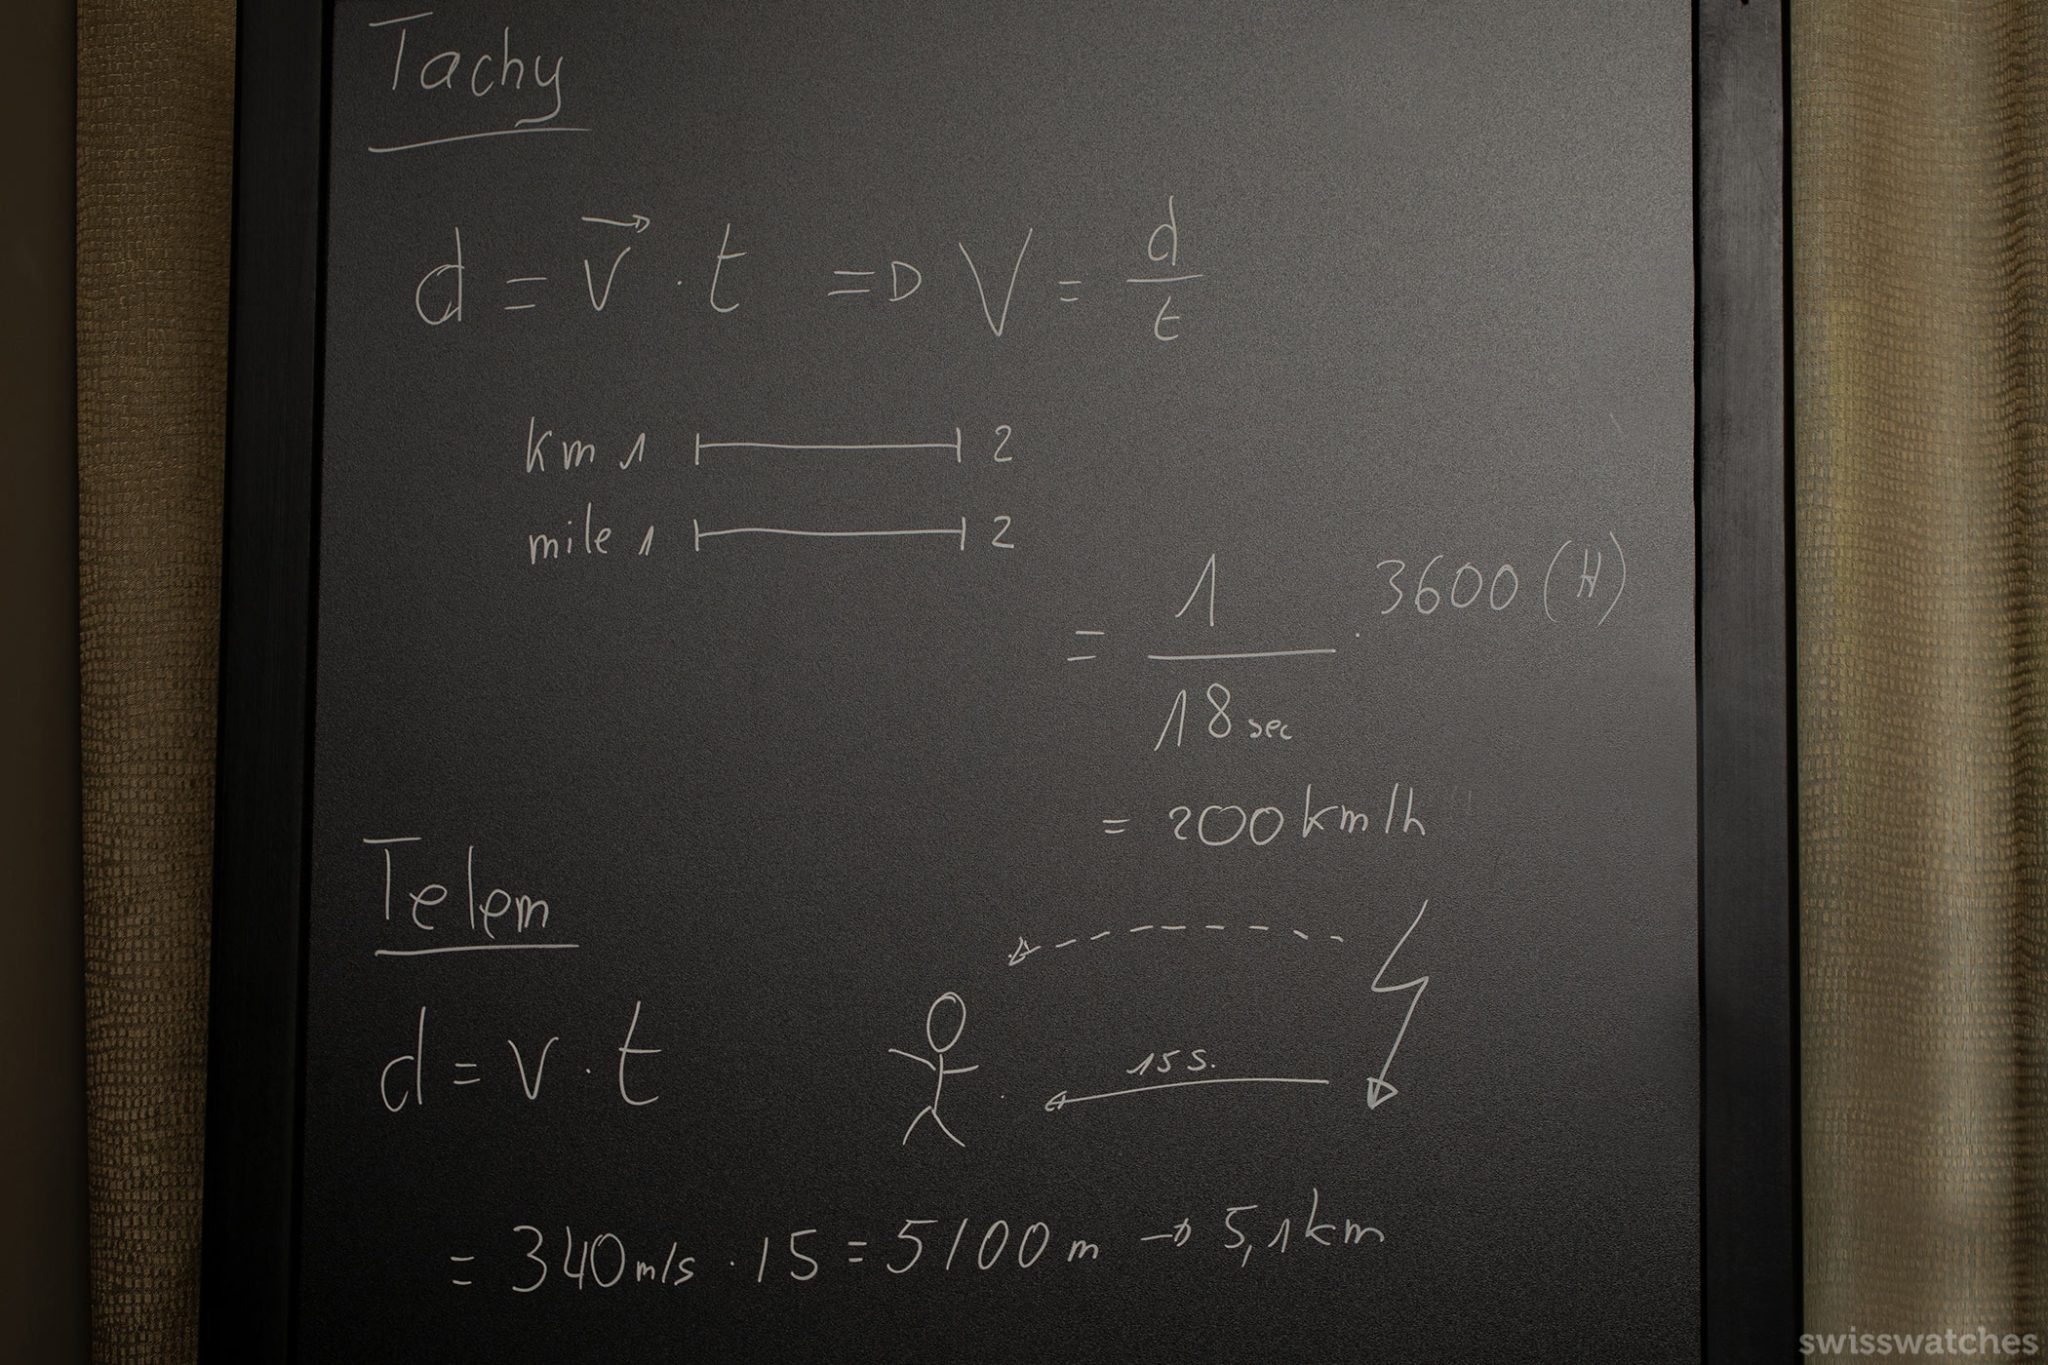 Tachy
d = v⃗ · t => V = d/t
km 1 2
mile 1 2
= 1/18 sec · 3600 (H)
= 200 km/h
Telem
d = v · t
15 s.
= 340 m/s · 15 = 5100 m → 5,1 km
swisswatches